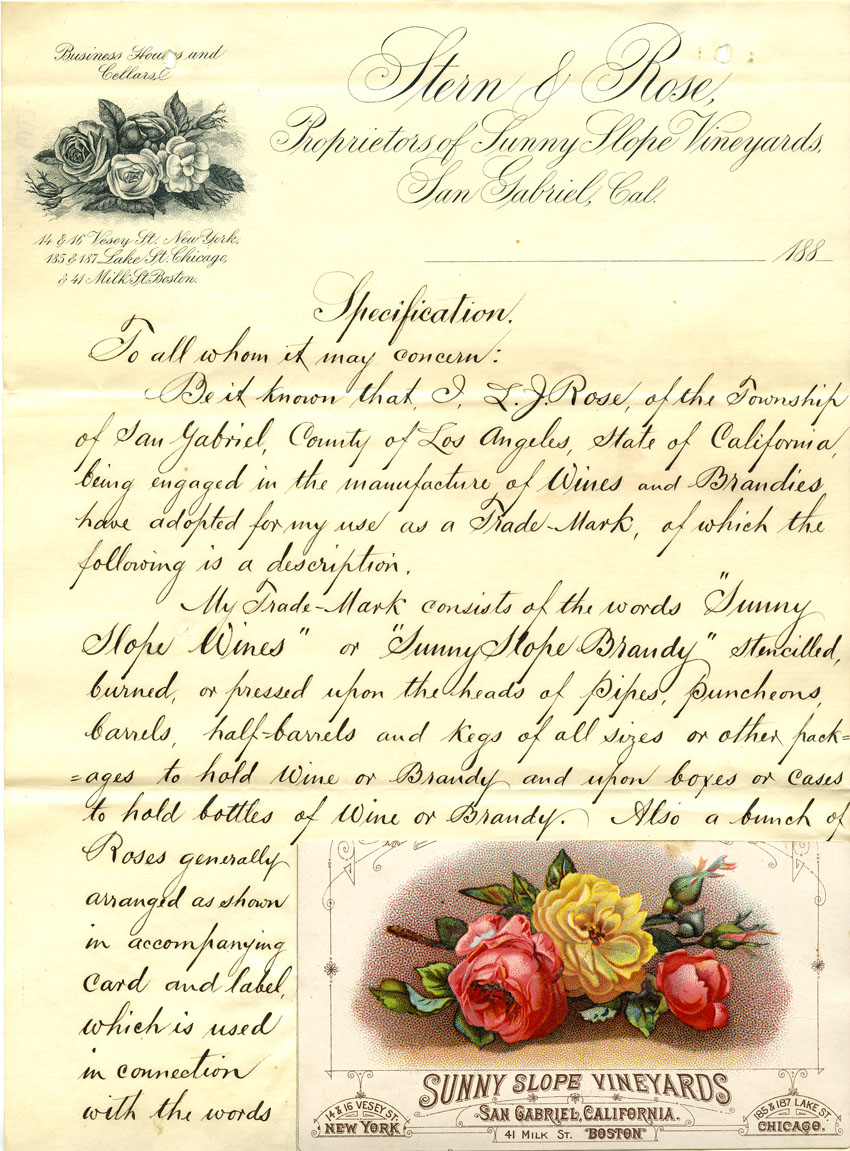 Business Houses and
Cellars,
Stern & Rose,
Proprietors of Sunny Slope Vineyards,
San Gabriel, Cal.
14 & 16 Vesey St. New York,
185 & 187 Lake St. Chicago,
& 41 Milk St. Boston.
188
Specification.
To all whom it may concern:
Be it known that, I, L. J. Rose, of the Township
of San Gabriel, County of Los Angeles, State of California,
being engaged in the manufacture of Wines and Brandies
have adopted for my use as a Trade-Mark, of which the
following is a description.
My Trade-Mark consists of the words "Sunny
Slope Wines" or "Sunny Slope Brandy" stencilled,
burned, or pressed upon the heads of pipes, puncheons,
barrels, half=barrels and kegs of all sizes or other pack=
=ages to hold Wine or Brandy and upon boxes or cases
to hold bottles of Wine or Brandy. Also a bunch of
Roses generally
arranged as shown
in accompanying
card and label,
which is used
in connection
with the words
SUNNY SLOPE VINEYARDS
SAN GABRIEL, CALIFORNIA.
14 & 16 VESEY ST.
NEW YORK
41 MILK ST. "BOSTON"
185 & 187 LAKE ST.
CHICAGO.